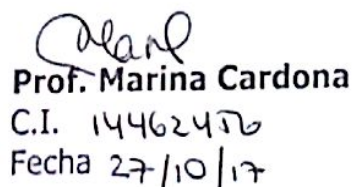 Prof. Marina Cardona
C.I. 14462456
Fecha 27/10/17